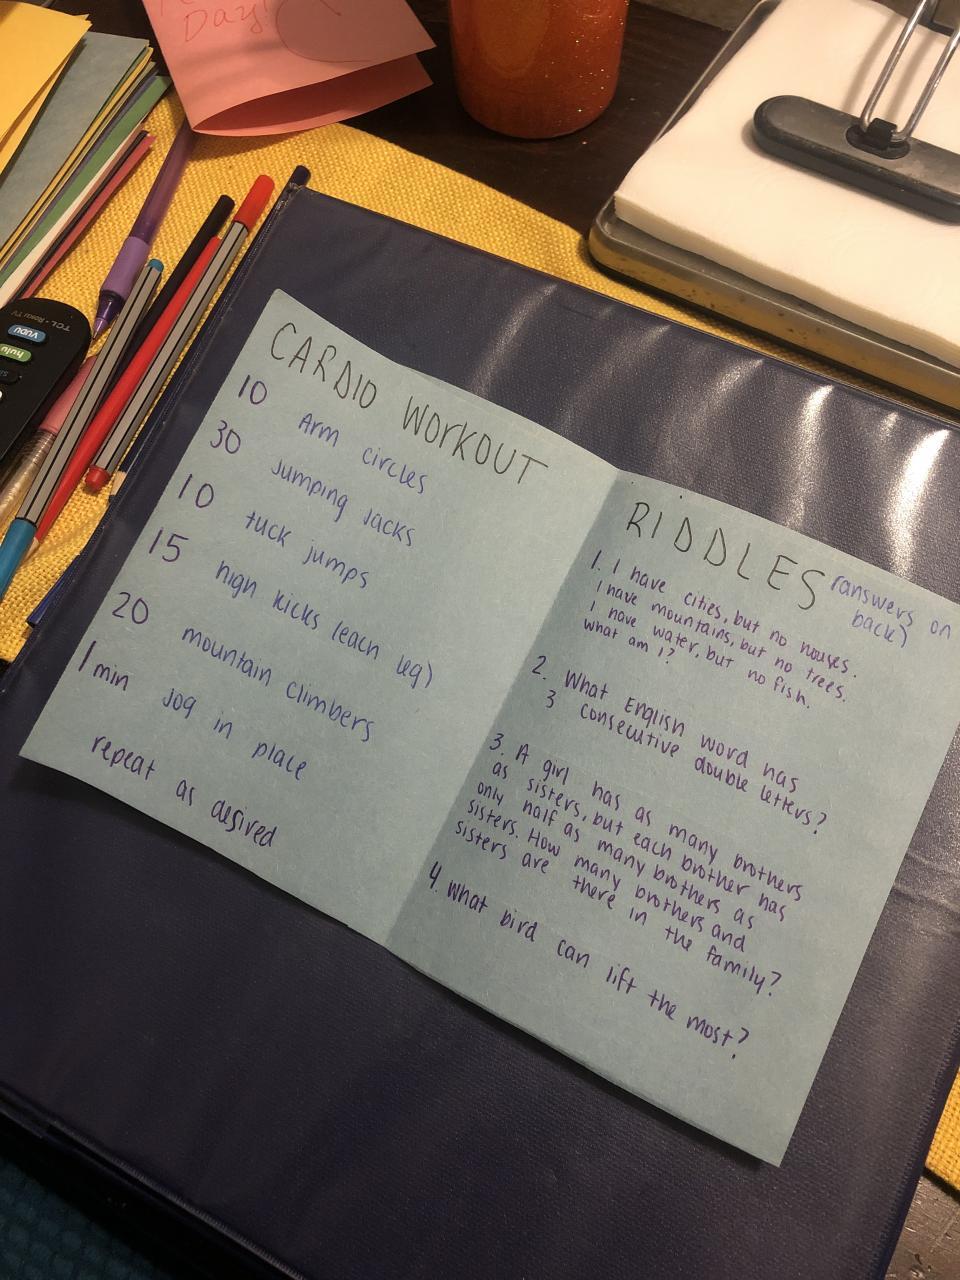 Day!
TCL • Roku TV
VUDU
hulu
CARDIO WORKOUT
10 Arm circles
30 Jumping Jacks
10 tuck jumps
15 high kicks (each leg)
20 mountain climbers
1 min jog in place
repeat as desired
RIDDLES (answers on
back)
1. I have cities, but no houses.
I have mountains, but no trees.
I have water, but no fish.
What am I?
2. What English word has
3 consecutive double letters?
3. A girl has as many brothers
as sisters, but each brother has
only half as many brothers as
sisters. How many brothers and
sisters are there in the family?
4. What bird can lift the most?